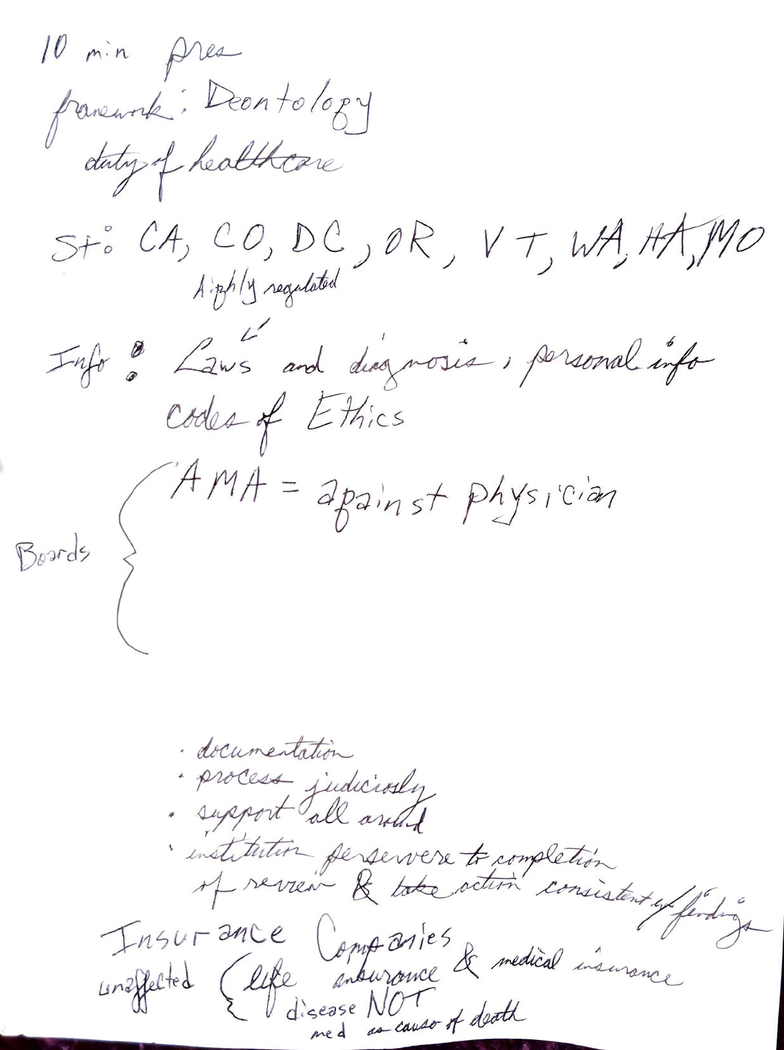 10 min pres
framework: Deontology
duty of healthcare
St: CA, CO, DC, OR, VT, WA, HA, MO
highly regulated
Info: Laws and diagnosis, personal info
codes of Ethics
AMA = against physician
Boards
· documentation
· process judiciosly
· support all around
· institution persevere to completion
of review & take action consistent w/ findings
Insurance Companies
unaffected life insurance & medical insurance
disease NOT
med as cause of death